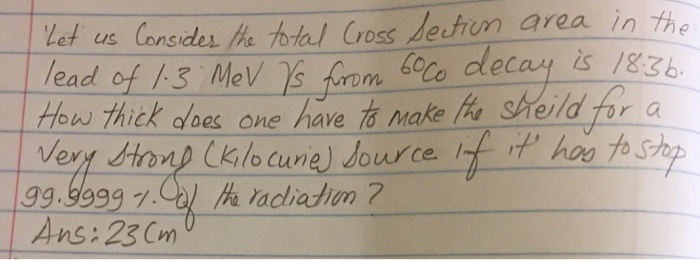 Let us Consider the total Cross Section area in the
lead of 1.3 MeV γs from 60Co decay is 18.3b.
How thick does one have to make the sheild for a
Very strong (Kilocurie) Source if it has to stop
99.9999 %. of the radiation?
Ans: 23 Cm